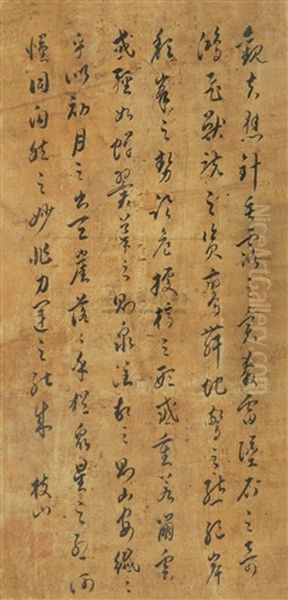 觀夫懸針垂露之異奔雷墜石之奇
鴻飛獸駭之資鸞舞蛇驚之態絕岸
頹峯之勢臨危據槁之形或重若崩雲
或輕如蟬翼導之則泉注頓之則山安纖〻
乎似初月之出天崖落〻乎猶衆星之列河
漢同自然之妙非力運之能成 枝山